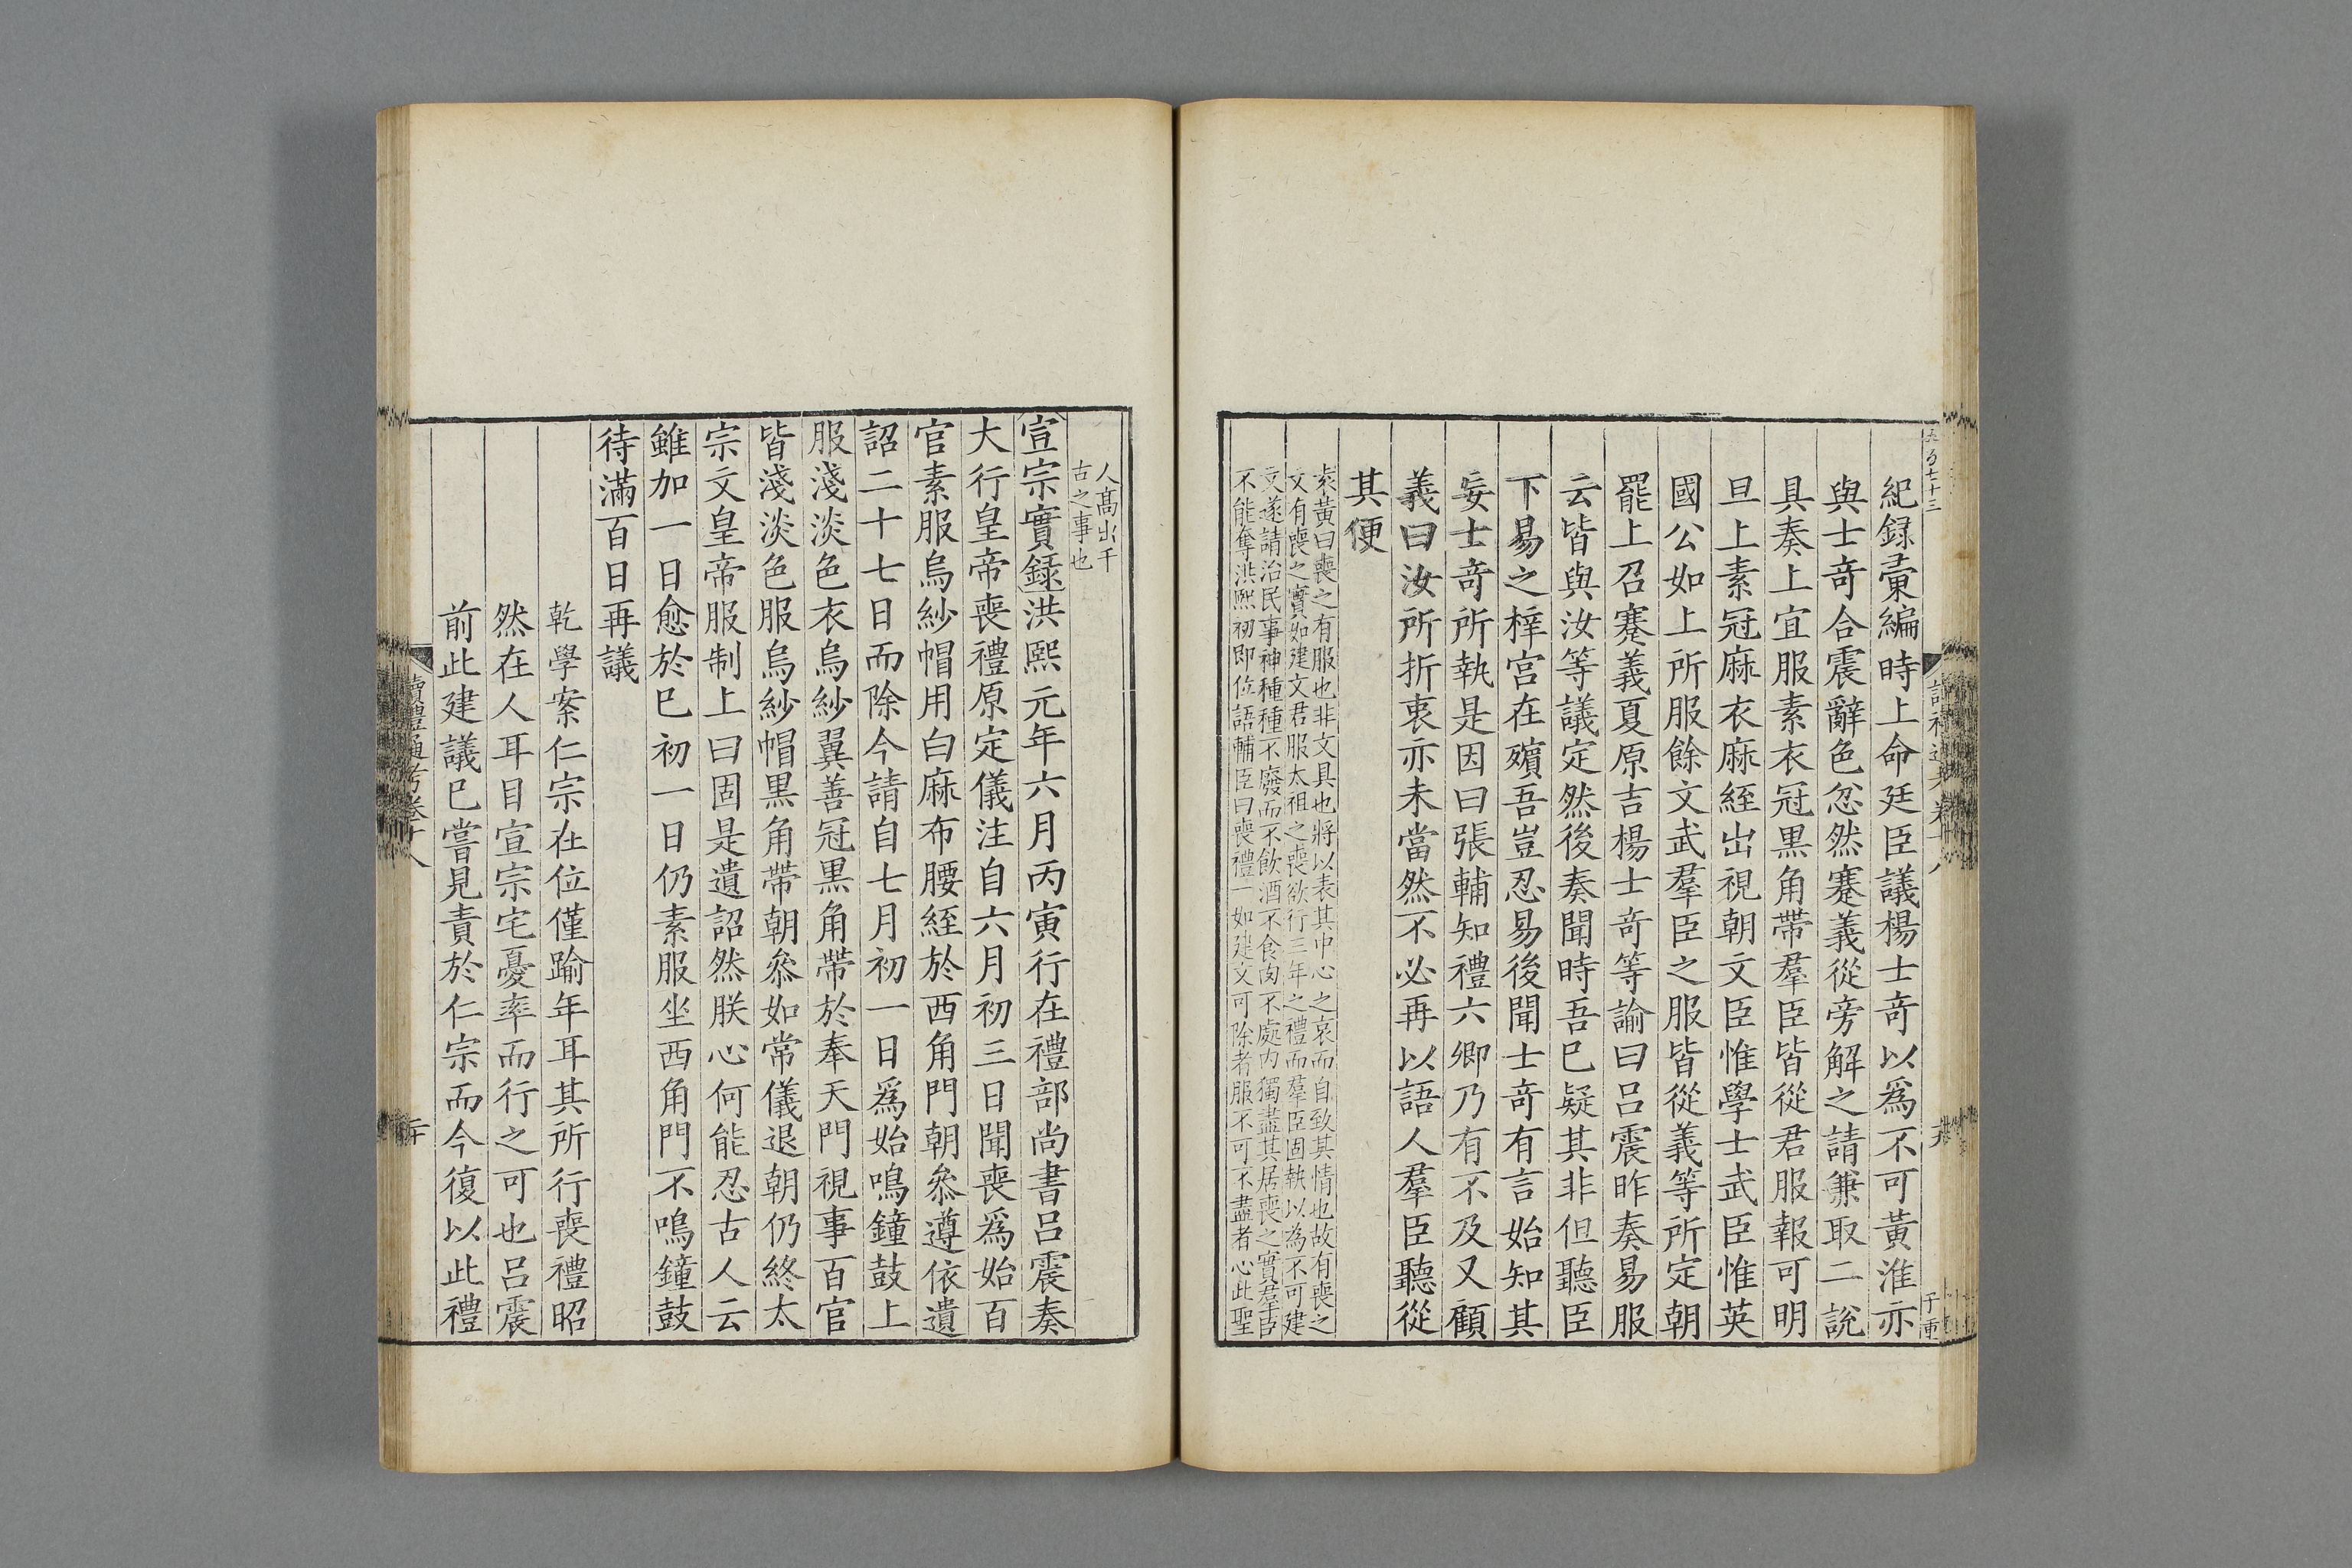 紀録彚編時上命廷臣議楊士竒以爲不可黃淮亦
與士竒合震辭色忿然蹇義從旁解之請兼取二說
具奏上宜服素衣冠黒角帶羣臣皆從君服報可明
旦上素冠麻衣麻絰出視朝文臣惟學士武臣惟英
國公如上所服餘文武羣臣之服皆從義等所定朝
罷上召蹇義夏原吉楊士竒等諭曰呂震昨奏易服
云皆與汝等議定然後奏聞時吾已疑其非但聽臣
下易之梓宮在殯吾豈忍易後聞士竒有言始知其
妄士竒所執是因曰張輔知禮六卿乃有不及又顧
義曰汝所折衷亦未當然不必再以語人羣臣聽從
其便
黃曰喪之有服也非文具也將以表其中心之哀而自致其情也故有喪之
文有喪之實如建文君服太祖之喪欲行三年之禮而羣臣固執以為不可建
文遂請治民事神種種不廢而不飲酒不食肉不處内獨盡其居喪之實君吉
不能奪洪熙初即位語輔臣曰喪禮一如建文可除者服不可不盡者心此聖
人髙出千
古之事也
宣宗實録洪熙元年六月丙寅行在禮部尚書呂震奏
大行皇帝喪禮原定儀注自六月初三日聞喪爲始百
官素服烏紗帽用白麻布腰絰於西角門朝叅遵依遺
詔二十七日而除今請自七月初一日爲始鳴鐘鼓上
服淺淡色衣烏紗翼善冠黒角帶於奉天門視事百官
皆淺淡色服烏紗帽黒角帶朝叅如常儀退朝仍終太
宗文皇帝服制上曰固是遺詔然朕心何能忍古人云
雖加一日愈於已初一日仍素服坐西角門不鳴鐘鼓
待滿百日再議
乾學案仁宗在位僅踰年耳其所行喪禮昭
然在人耳目宣宗宅憂率而行之可也呂震
前此建議已嘗見責於仁宗而今復以此禮
讀禮通考卷十八